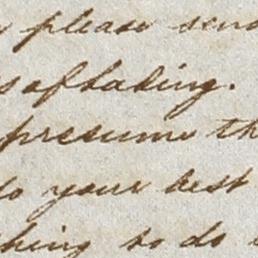 please send
of lading.
presume th
to your best
thing to do